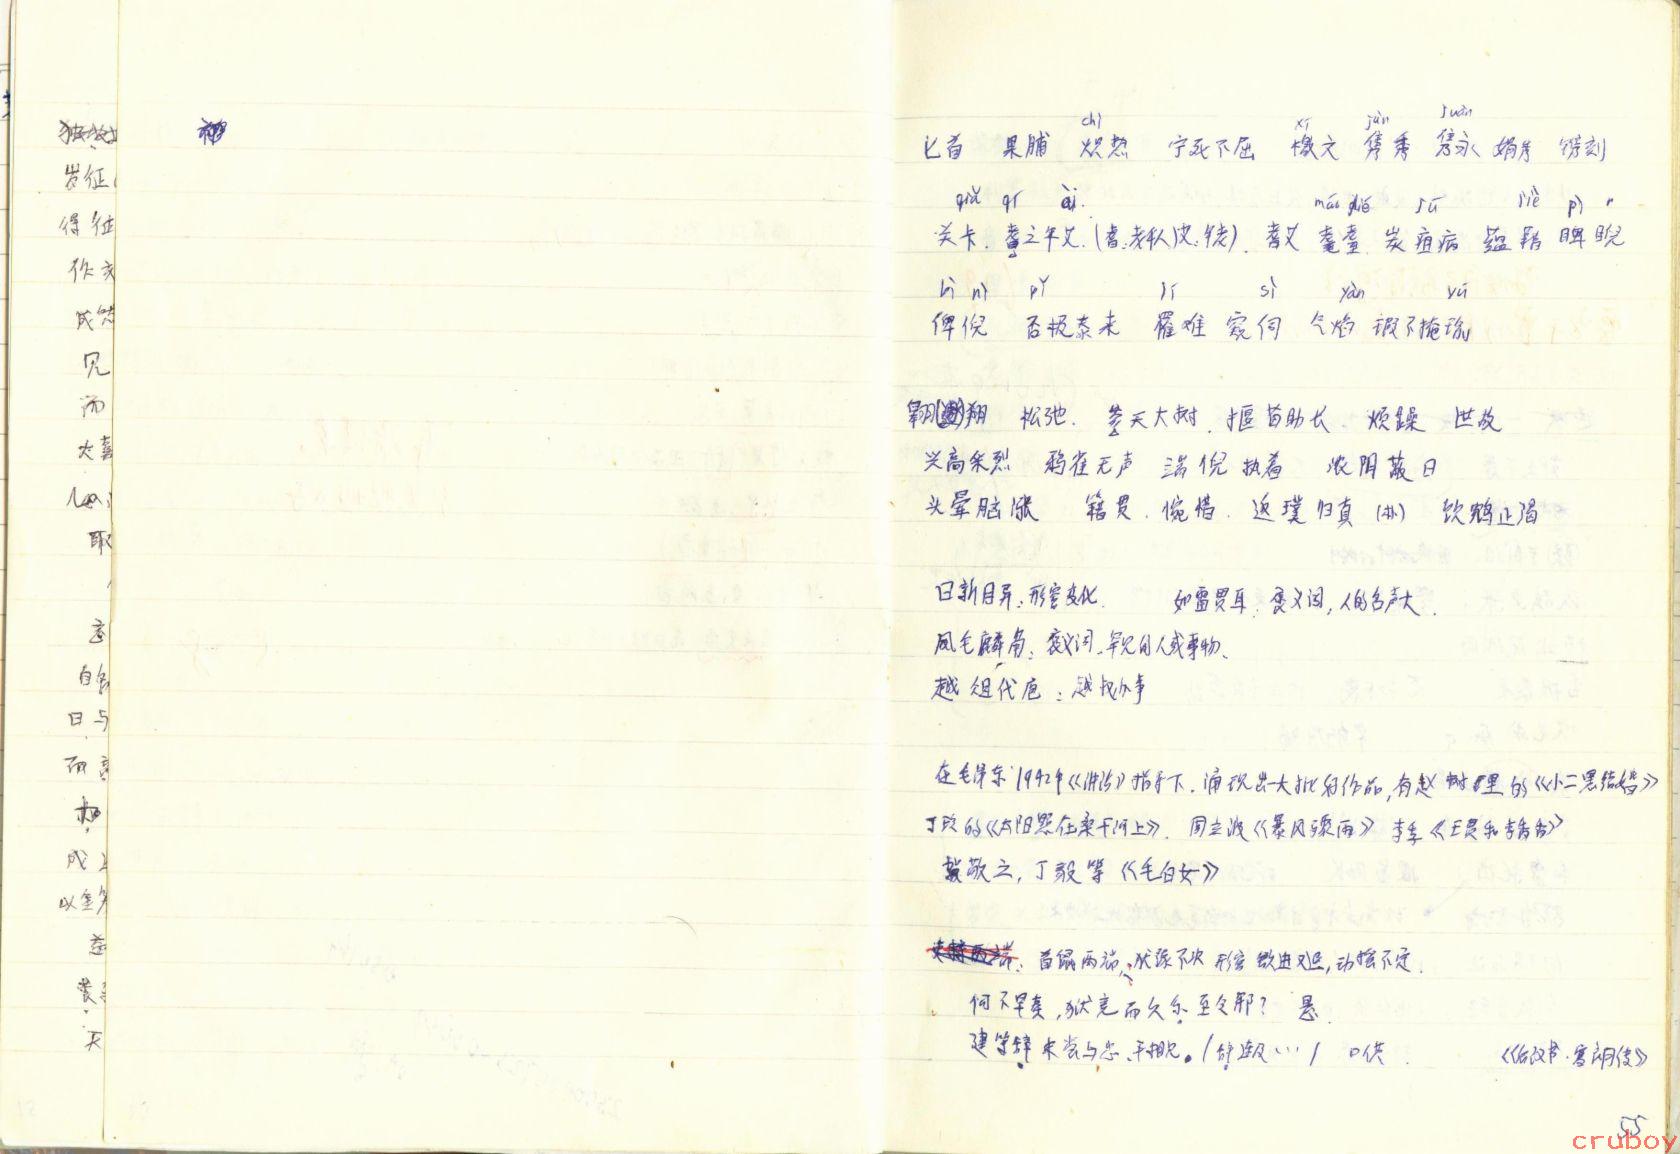 发征
得征
作文
成结
见
而
大喜
取
自
日与
而
成
以
天
chì xī jùn juàn
匕首 果脯 炽热 宁死不屈 檄文 隽秀 隽永 娟秀 镌刻
qiǎ qí ài mào dié jū jiè pì
关卡. 耆之年艾. 耆艾 耄耋. 炭疽病 蕴藉 睥睨
nì pǐ lí sì yàn yú
俾倪 否极泰来 罹难 窥伺 气焰 瑕不掩瑜
翱翔 松弛. 参天大树. 揠苗助长 烦躁 世故
兴高采烈 鸦雀无声 端倪 执着 浓阴蔽日
头晕脑涨 籍贯. 惋惜. 返璞归真 (朴) 饮鸩止渴
日新月异: 形容变化. 如雷贯耳. 褒义词, 人的名声大.
凤毛麟角: 褒义词. 罕见的人或事物.
越俎代庖: 越权办事
在毛泽东1942年《讲话》指导下. 涌现出一大批好作品, 有赵树里的《小二黑结婚》
丁玲的《太阳照在桑干河上》. 周立波《暴风骤雨》 李季《王贵和李香香》
贺敬之, 丁毅等《毛白女》
首鼠两端, 犹豫不决 形容欲进又退, 动摇不定.
何不早奏, 狱竟而久系至今邪?
建等辞未尝与忠、平相见. (辞连及…) 口供. 《后汉书·寒朗传》
55
cruboy